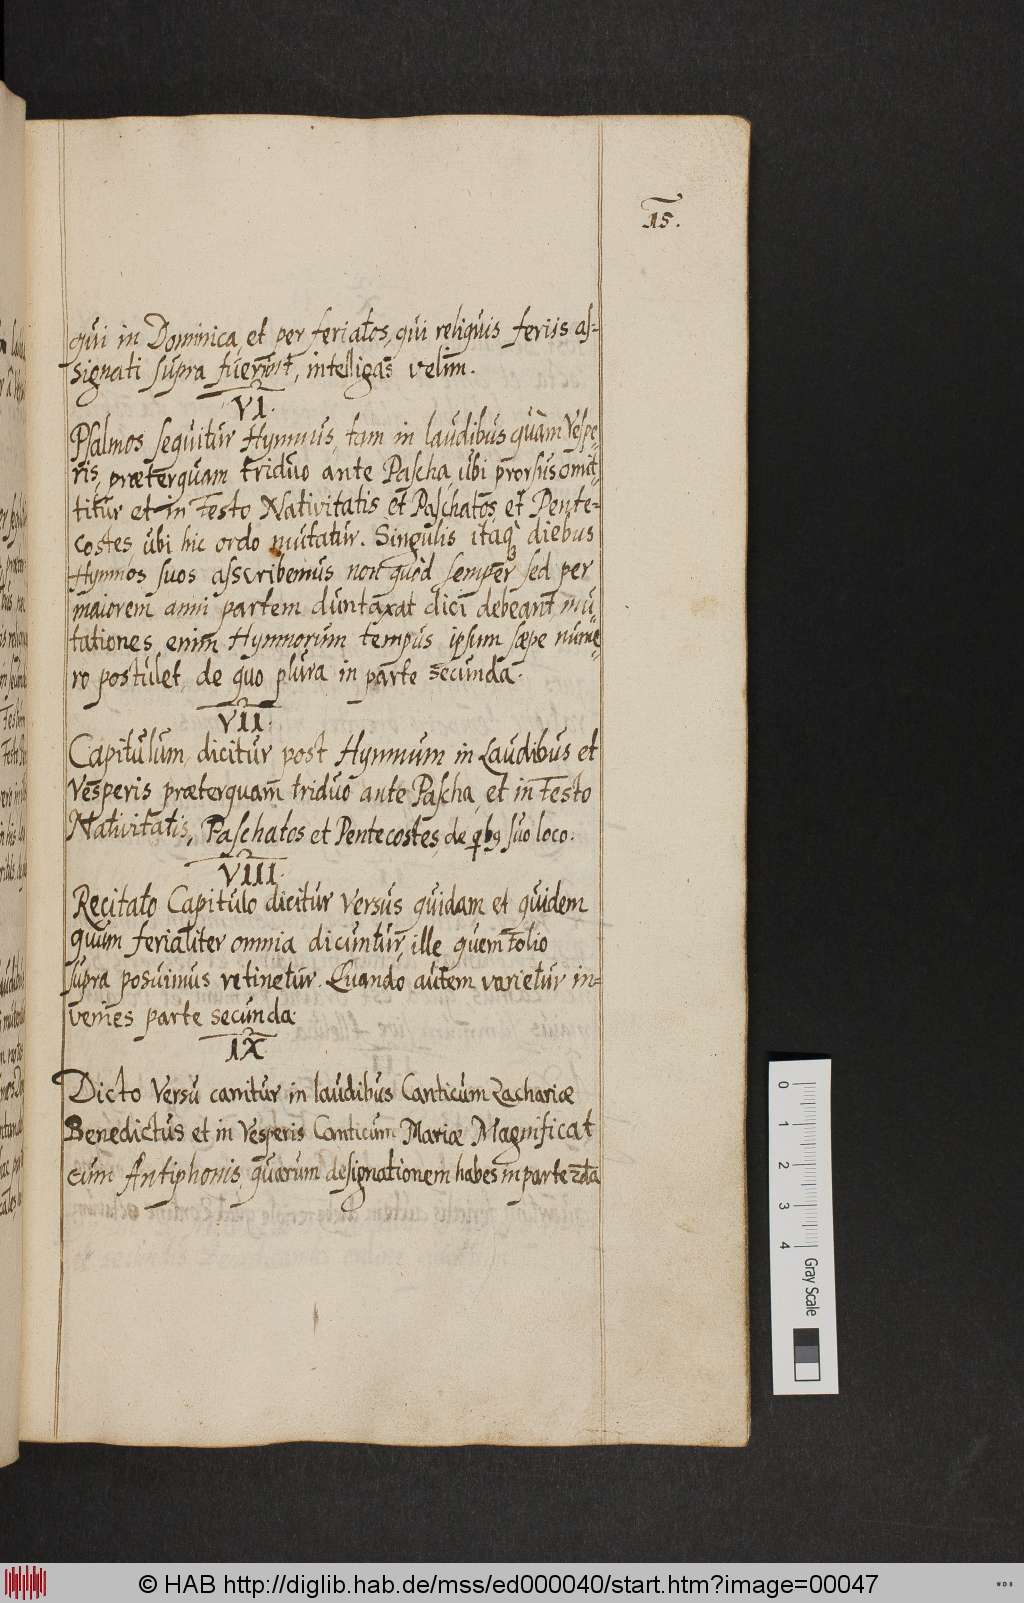 15.
qui in Dominica, et per feriatos, qui reliquis feriis as-
signati supra fuerint, intelligas velim.
VI.
Psalmos sequitur Hymnus, tam in laudibus quàm Vespe-
ris, præterquam triduo ante Pascha, ubi prorsus omit-
titur et in Festo Nativitatis et Paschatos, et Pente-
costes, ubi hic ordo mutatur. Singulis itaq3 diebus
Hymnos suos asscribemus non quòd semper sed per
maiorem anni partem duntaxat dici debeant, mu-
tationes enim Hymnorum tempus ipsum sæpe nume-
ro postulet, de quo plura in parte secunda.
VII.
Capitulum dicitur post Hymnum in Laudibus et
Vesperis præterquam triduo ante Pascha, et in Festo
Nativitatis, Paschatos et Pentecostes, de qbꝰ suo loco.
VIII.
Recitato Capitulo dicitur versus quidam et quidem
quum ferialiter omnia dicuntur, ille quem folio
supra posuimus retinetur. Quando autem varietur in-
venies parte secunda.
IX
Dicto Versu canitur in laudibus Canticum Zachariæ
Benedictus et in Vesperis Canticum Mariæ Magnificat
cum Antiphonis, quarum designationem habes in parte 2da
0 1 2 3 4
Gray Scale
© HAB http://diglib.hab.de/mss/ed000040/start.htm?image=00047